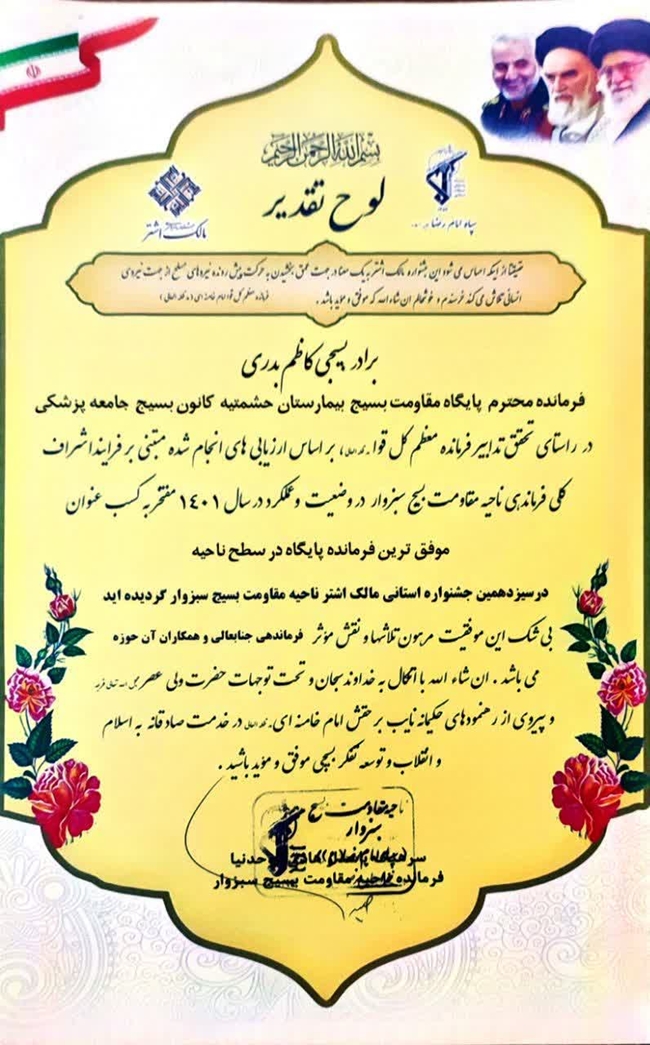 بسم الله الرحمن الرحیم
لوح تقدیر
مالک اشتر
سپاه امام رضا
حقیقتا از اینکه احساس می شود این جشنواره مالک اشتر به یک معنا در جهت عمق بخشیدن به حرکت پیش رونده نیروهای مسلح از جهت نیروی
انسانی تلاش می کند خرسندم و خوشحالم ان شاء الله که موفق و مؤید باشد . فرمانده معظم کل قوا امام خامنه ای (مدظله العالی)
برادر بسیجی کاظم بدری
فرمانده محترم پایگاه مقاومت بسیج بیمارستان حشمتیه کانون بسیج جامعه پزشکی
در راستای تحقق تدابیر فرمانده معظم کل قوا مدظله العالی، بر اساس ارزیابی های انجام شده مبتنی بر فرایند اشراف
کلی فرماندهی ناحیه مقاومت بسیج سبزوار در وضعیت و عملکرد در سال ۱۴۰۱ مفتخر به کسب عنوان
موفق ترین فرمانده پایگاه در سطح ناحیه
درسیزدهمین جشنواره استانی مالک اشتر ناحیه مقاومت بسیج سبزوار گردیده اید
بی شک این موفقیت مرهون تلاشها و نقش مؤثر فرماندهی جنابعالی و همکاران آن حوزه
می باشد . ان شاء الله با اتکال به خداوند سبحان و تحت توجهات حضرت ولی عصر عجل الله تعالی فرجه
و پیروی از رهنمودهای حکیمانه نایب برحقش امام خامنه ای مدظله العالی در خدمت صادقانه به اسلام
و انقلاب و توسعه تفکر بسیجی موفق و مؤید باشید .
ناحیه مقاومت بسیج
سبزوار
فرمانده ناحیه مقاومت بسیج سبزوار